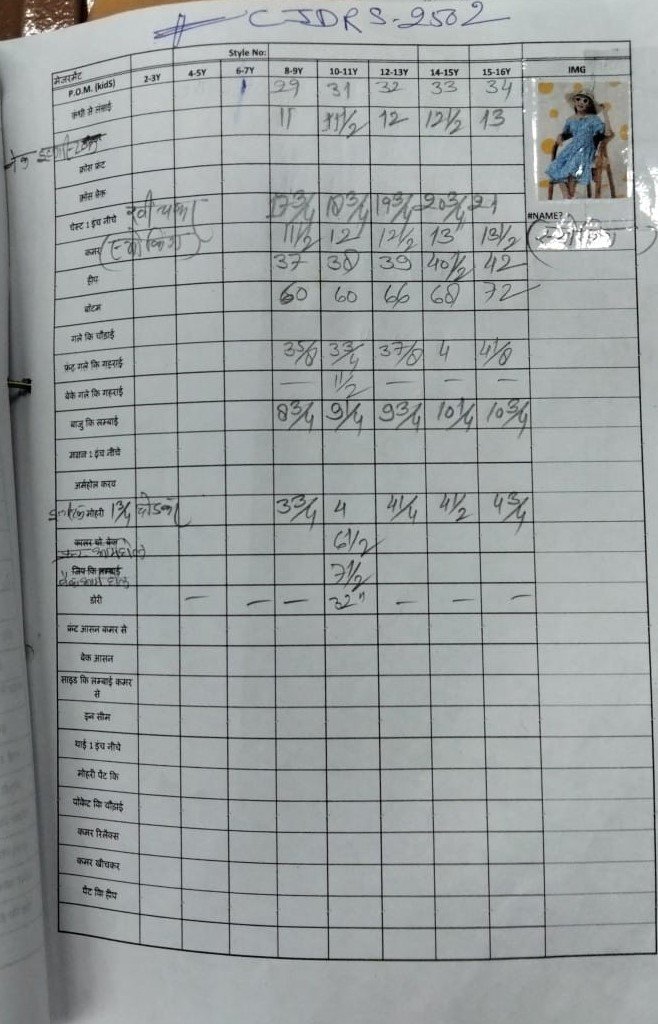 CJDRS-2502
Style No:
मेजरमेंट
P.O.M. (kidS) 2-3Y 4-5Y 6-7Y 8-9Y 10-11Y 12-13Y 14-15Y 15-16Y IMG
कंधी से लंबाई 29 31 32 33 34
11 11 1/2 12 12 1/2 13
क्रोस फ्रंट
क्रोस बेक
चेस्ट 1 इंच नीचे 17 3/4 18 3/4 19 3/4 20 3/4 21
#NAME?
कमर 11 1/2 12 12 1/2 13" 13 1/2
हीप 37 38 39 40 1/2 42
बॉटम 60 60 66 68 72
गले कि चौड़ाई
फ्रंट गले कि गहराई 3 5/8 3 3/4 3 7/8 4 4 1/8
बेके गले कि गहराई — 1 1/2 — — —
बाजु कि लम्बाई 8 3/4 9 1/4 9 3/4 10 1/4 10 3/4
मसल 1 इंच नीचे
अर्महोल करव
मोहरी 1 3/4 3 3/4 4 4 1/4 4 1/2 4 3/4
6 1/2
7 1/2
डोरी — — — 32" — — —
फ्रंट आसन कमर से
बेक आसन
साइड कि लम्बाई कमर
से
इन सीम
थाई 1 इंच नीचे
मोहरी पेंट कि
पोकेट कि चौड़ाई
कमर रिलेक्स
कमर खीचकर
पेंट कि हीप